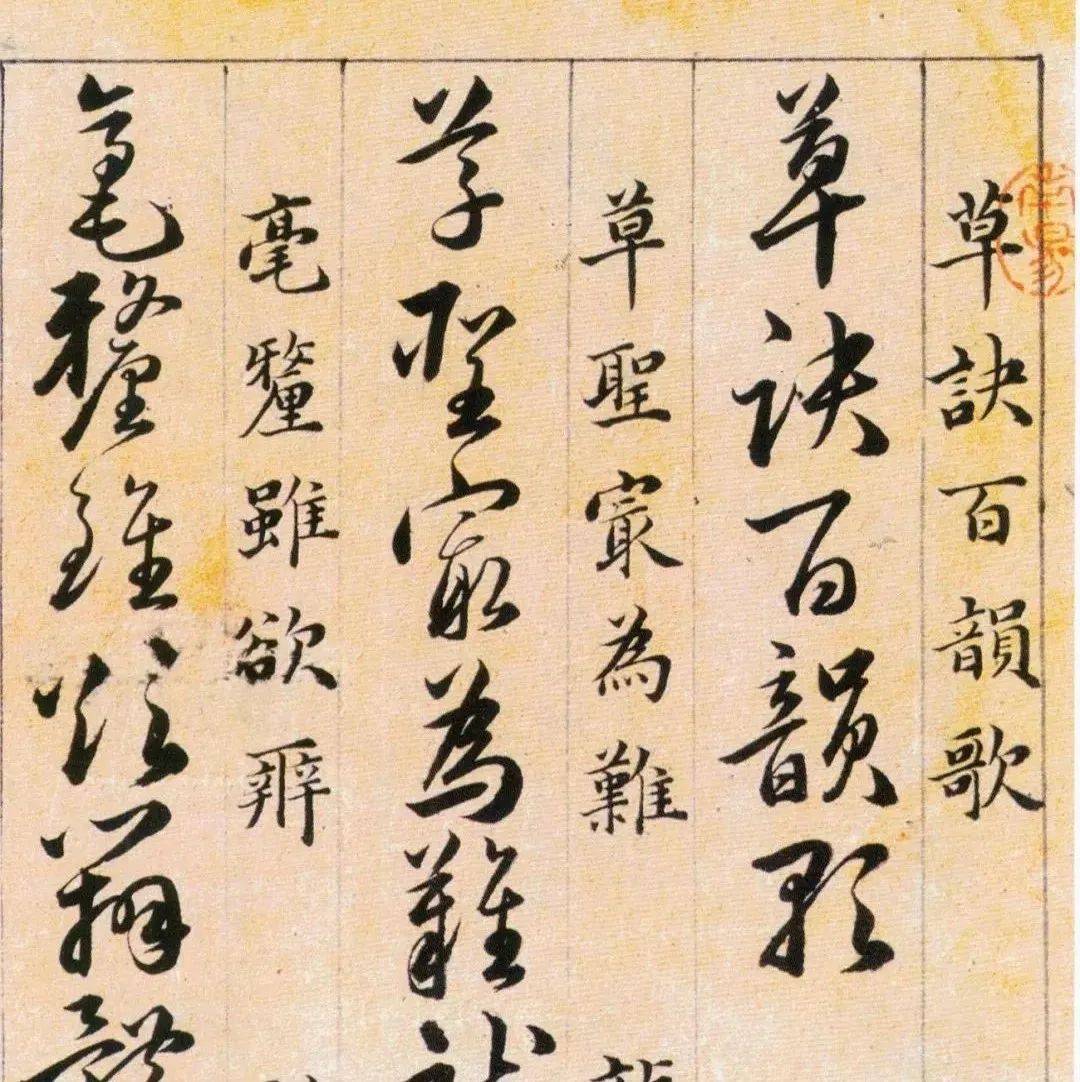 草訣百韻歌
草訣百韻歌
草聖㝡為難
草聖㝡為難
毫釐雖欲辨
毫釐雖欲辨